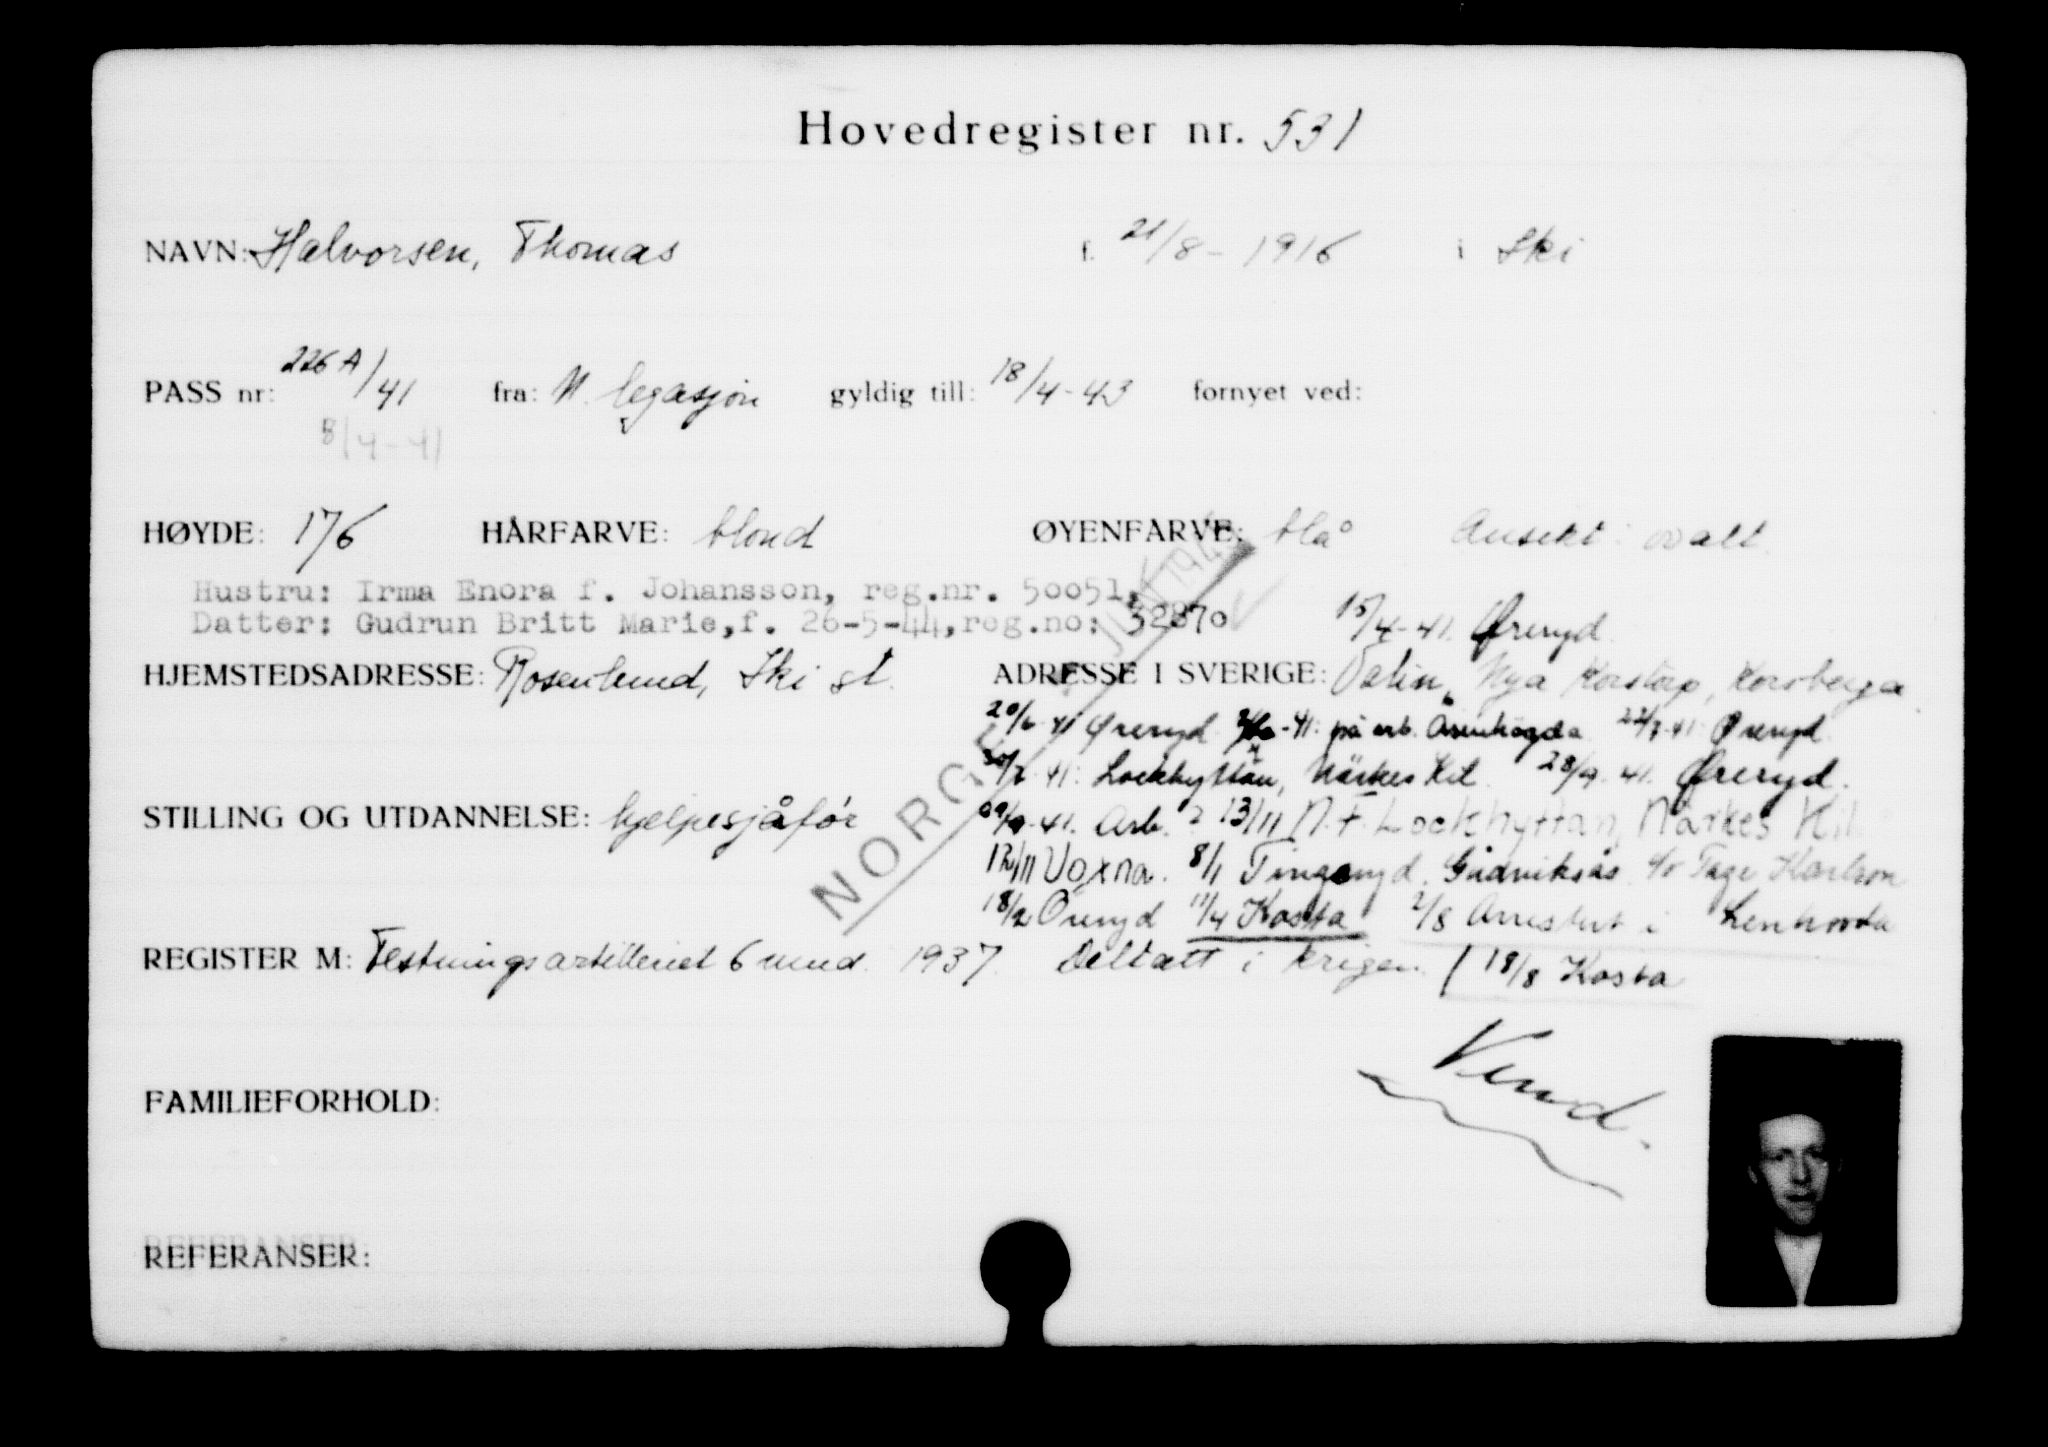 Hovedregister nr. 531
NAVN: Halvorsen, Thomas f. 21/8-1916 i Ski
PASS nr: 226 A/41 fra: N. legasjon gyldig till: 18/4-43 fornyet ved:
8/4-41
HØYDE: 176 HÅRFARVE: blond ØYENFARVE: blå Ansikt: ovalt.
Hustru: Irma Enora f. Johansson, reg.nr. 50051.
Datter: Gudrun Britt Marie,f. 26-5-44,reg.no: 32870
15/4-41. Øreryd.
HJEMSTEDSADRESSE: Rosenlund, Ski st. ADRESSE I SVERIGE: Nya Korstorp, Korsberga
20/6 41 Øreryd -41: på arb. 22/7-41: Øreryd.
41: Lockhyttan, Närkes Kil. 28/9. 41. Øreryd.
STILLING OG UTDANNELSE: hjelpesjåfør 41. Arb. 13/11 N.F. Lockhyttan, Närkes Kil
Voxna. 8/1 Tingsryd. Gudviksås c/o Tage Karlson
18/2 Öreryd 11/4 Kosta 2/8 Arrestert i Lenhovda
NORGE
REGISTER M: Festningsartilleriet 6 mnd. 1937. Deltatt i krigen. / 18/8 Kosta
FAMILIEFORHOLD:
REFERANSER: